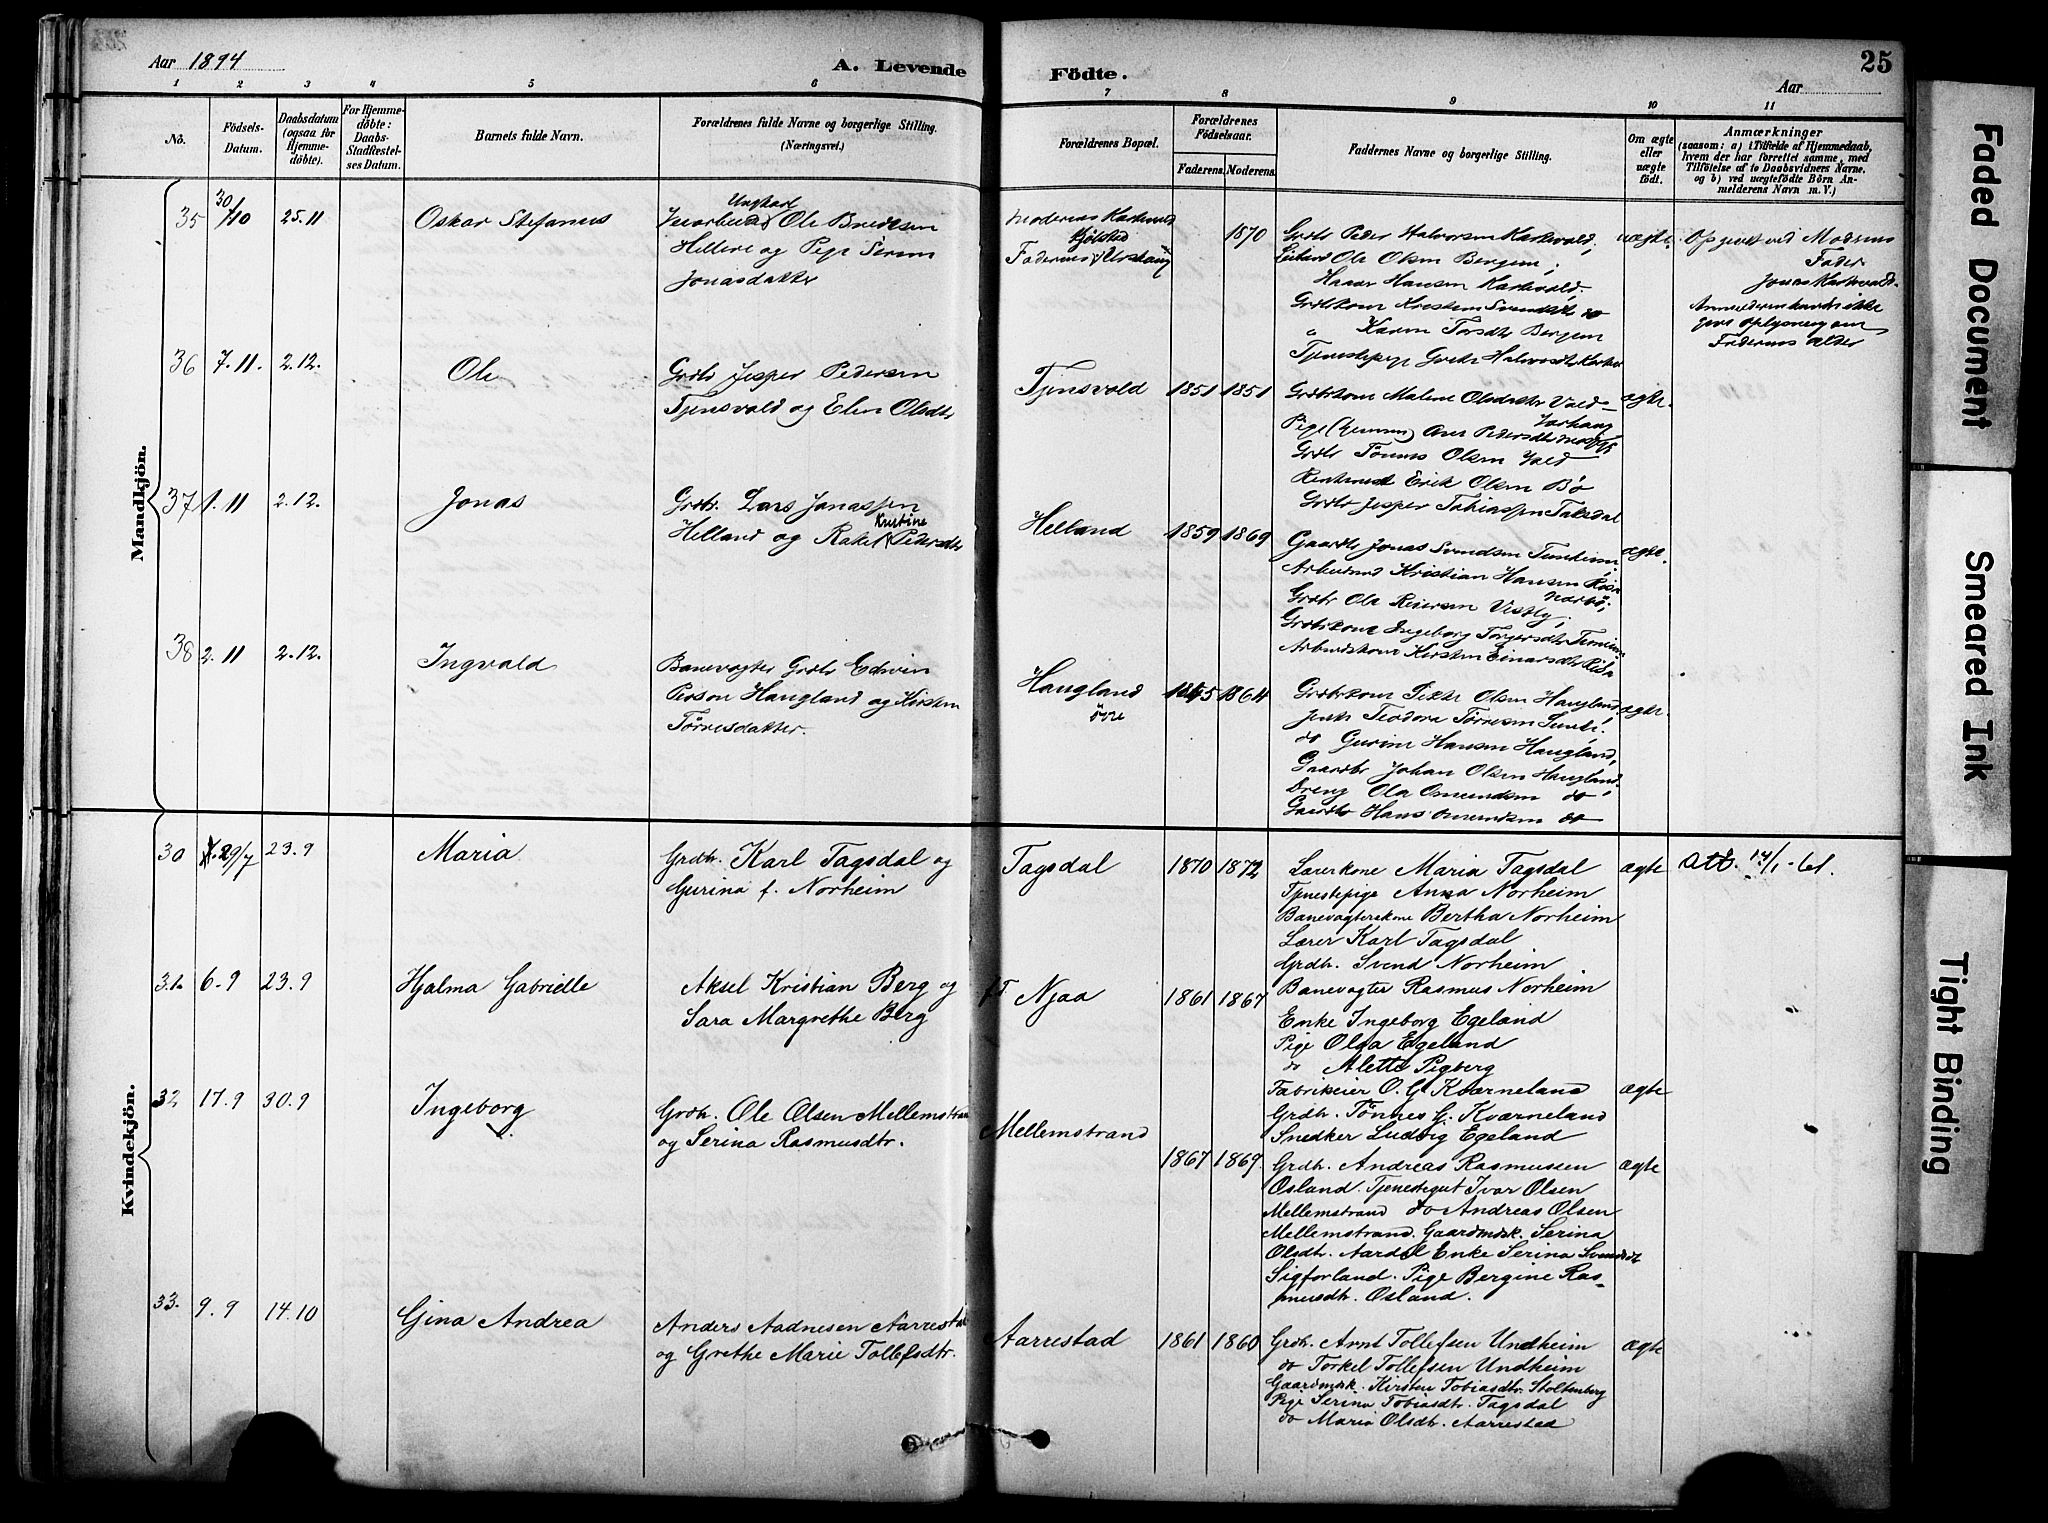 Aar 1894
A. Levende Födte.
25
Aar
1 2 3 4 5 6 7 8 9 10 11
No.
Födsels-Datum.
Daabsdatum (ogsaa för Hjemme-döbte).
For Hjemme-döbte: Daabs-Stadfæstel-ses Datum.
Barnets fulde Navn.
Forældrenes fulde Navne og borgerlige Stilling.
(Næringsvei.)
Forældrenes Bopæl.
Forældrenes Födselsaar.
Faderens. Moderens.
Faddernes Navne og borgerlige Stilling.
Om ægte eller uægte födt.
Anmærkninger
(saasom: a) i Tilfælde af Hjemmedaab, hvem der har forrettet samme, med Tilföielse af to Daabsvidners Navne, og b) ved uægtefödte Börn An-melderens Navn m. V.)
Mandkjön.
35 30/10 25.11 Oskar Stefanus
Ungkarl
Ole
Hellere og Pige
Jonasdatter
Moderens Karkvald
Faderens
1870
Grdbr Peder Halvorsen Karkvald,
Ole Olsen Bergem,
Hansen Karkvald,
Karen Bergem
uægte.
Opgivet ved Moderens
Fader
Jonas Karkvald.
ikke
give Oplysning om
Faderens Alder
36 7.11. 2.12. Ole
Grdbr Jesper Pedersen
Tjensvold og Elen Olsdtr
Tjensvold 1851 1851
Grdbrkone Malene Olsdatter Vald
Grdbr Tönnes Olsen Vald
Erik Olsen Bö
Grdbr Jesper Tobiassen Taksdal
ægte.
37 1.11 2.12. Jonas
Grdbr. Lars Jonassen
Helland og Rakel Kristine Pedersdtr
Helland 1859 1869
Gaardbr Jonas Svendsen
Kristian Hansen
Grdbr Ole Reiersen Vestly,
Grdbrkone Ingeborg Torgersdtr
Kirsten Einarsdtr Risa
ægte.
38 2.11 2.12. Ingvald
Banevogter Grdbr Edvin
Person Haugland og Kirsten
Törresdatter.
Haugland
övre
1865 1864
Grdbrkone Olsen Haugland,
Teodora Törresen
do Gurine Hansen Haugland,
Gaardbr Johan Olsen Haugland,
Dreng Ole Omundsen do
Gaardbr Hans Omundsen do
ægte.
Kvindekjön.
30 29/7 23.9 Maria
Grdbr. Karl Tagsdal og
Gurina f. Norheim
Tagsdal 1870 1872
Lærerkone Maria Tagsdal
Tjenestepige Anna Norheim
Banevogterskone Bertha Norheim
Lærer Karl Tagsdal
Grdbr. Svend Norheim
Banevogter Rasmus Norheim
ægte
Att. 17/1-61.
31. 6.9 23.9 Hjalma Gabrielle
Aksel Kristian Berg og
Sara Margrethe Berg
f.T. Njaa 1861 1867
Enke Ingeborg Egeland
Pige Olga Egeland
do Alette Pigberg
Fabrikeier O. G. Kværneland
Grdbr. Tönnes G. Kværneland
Snedker Ludvig Egeland
ægte
32 17.9 30.9 Ingeborg
Grdbr. Ole Olsen Mellemstrand
og Serina Rasmusdtr.
Mellemstrand
1867 1869
Grdbr. Andreas Rasmussen
Osland. Tjenestegut Ivar Olsen
Mellemstrand do Andreas Olsen
Mellemstrand. Gaardmdsk. Serina
Olsdtr. Aardal Enke Serina Svendsdt
Sigforland. Pige Bergine Ras-
musdtr. Osland.
ægte
33. 9.9 14.10 Gina Andrea
Anders Aadnesen Aarrestad
og Grethe Marie Tollefsdtr.
Aarrestad 1861 1860
Grdbr. Arnt Tollefsen Undheim
do Torkel Tollefsen Undheim
Gaardmdsk. Kirsten Tobiasdtr. Stoltenberg
Pige Serina Tobiasdtr. Tagsdal
do Maria Olsdtr. Aarrestad
ægte
Faded Document
Smeared Ink
Tight Binding